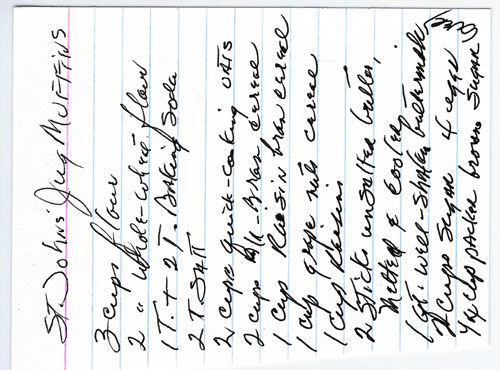 ST. JOHNS' Jug MUFFINS
3 cups flour
2 " whole-wheat flour
1 T. + 2 T. Baking Soda
2 T SALT
2 cups quick-cooking oats
2 cups All-Bran cereal
1 cup Raisin bran cereal
1 cup grape nuts cereal
1 cup Raisins
2 sticks unsalted butter,
melted & cooled
1 qt. well-shaken buttermilk
2 cups sugar 4 eggs
cup packed brown sugar